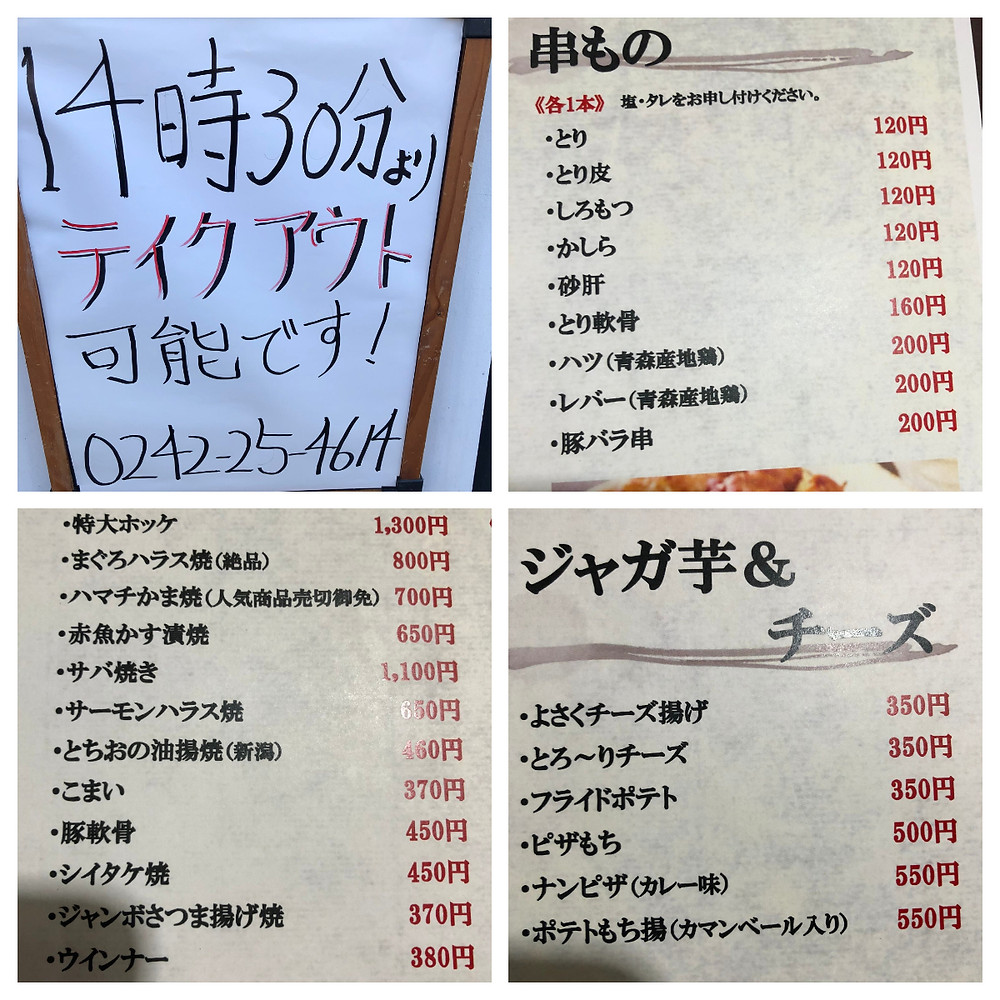 14時30分より
テイクアウト
可能です!
0242-25-4614
串もの
《各1本》 塩・タレをお申し付けください。
・とり 120円
・とり皮 120円
・しろもつ 120円
・かしら 120円
・砂肝 120円
・とり軟骨 160円
・ハツ(青森産地鶏) 200円
・レバー(青森産地鶏) 200円
・豚バラ串 200円
・特大ホッケ 1,300円
・まぐろハラス焼(絶品) 800円
・ハマチかま焼(人気商品売切御免) 700円
・赤魚かす漬焼 650円
・サバ焼き 1,100円
・サーモンハラス焼 650円
・とちおの油揚焼(新潟) 460円
・こまい 370円
・豚軟骨 450円
・シイタケ焼 450円
・ジャンボさつま揚げ焼 370円
・ウインナー 380円
ジャガ芋&
チーズ
・よさくチーズ揚げ 350円
・とろ〜りチーズ 350円
・フライドポテト 350円
・ピザもち 500円
・ナンピザ(カレー味) 550円
・ポテトもち揚(カマンベール入り) 550円